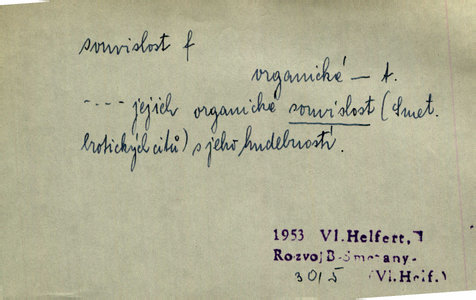 souvislost f
organické — t.
---- jejich organické souvislost (Smet.
erotických citů) s jeho hudebností.
1953 Vl.Helfert,
Rozvoj B.Smetany-
301 5 (Vl.Helf.)